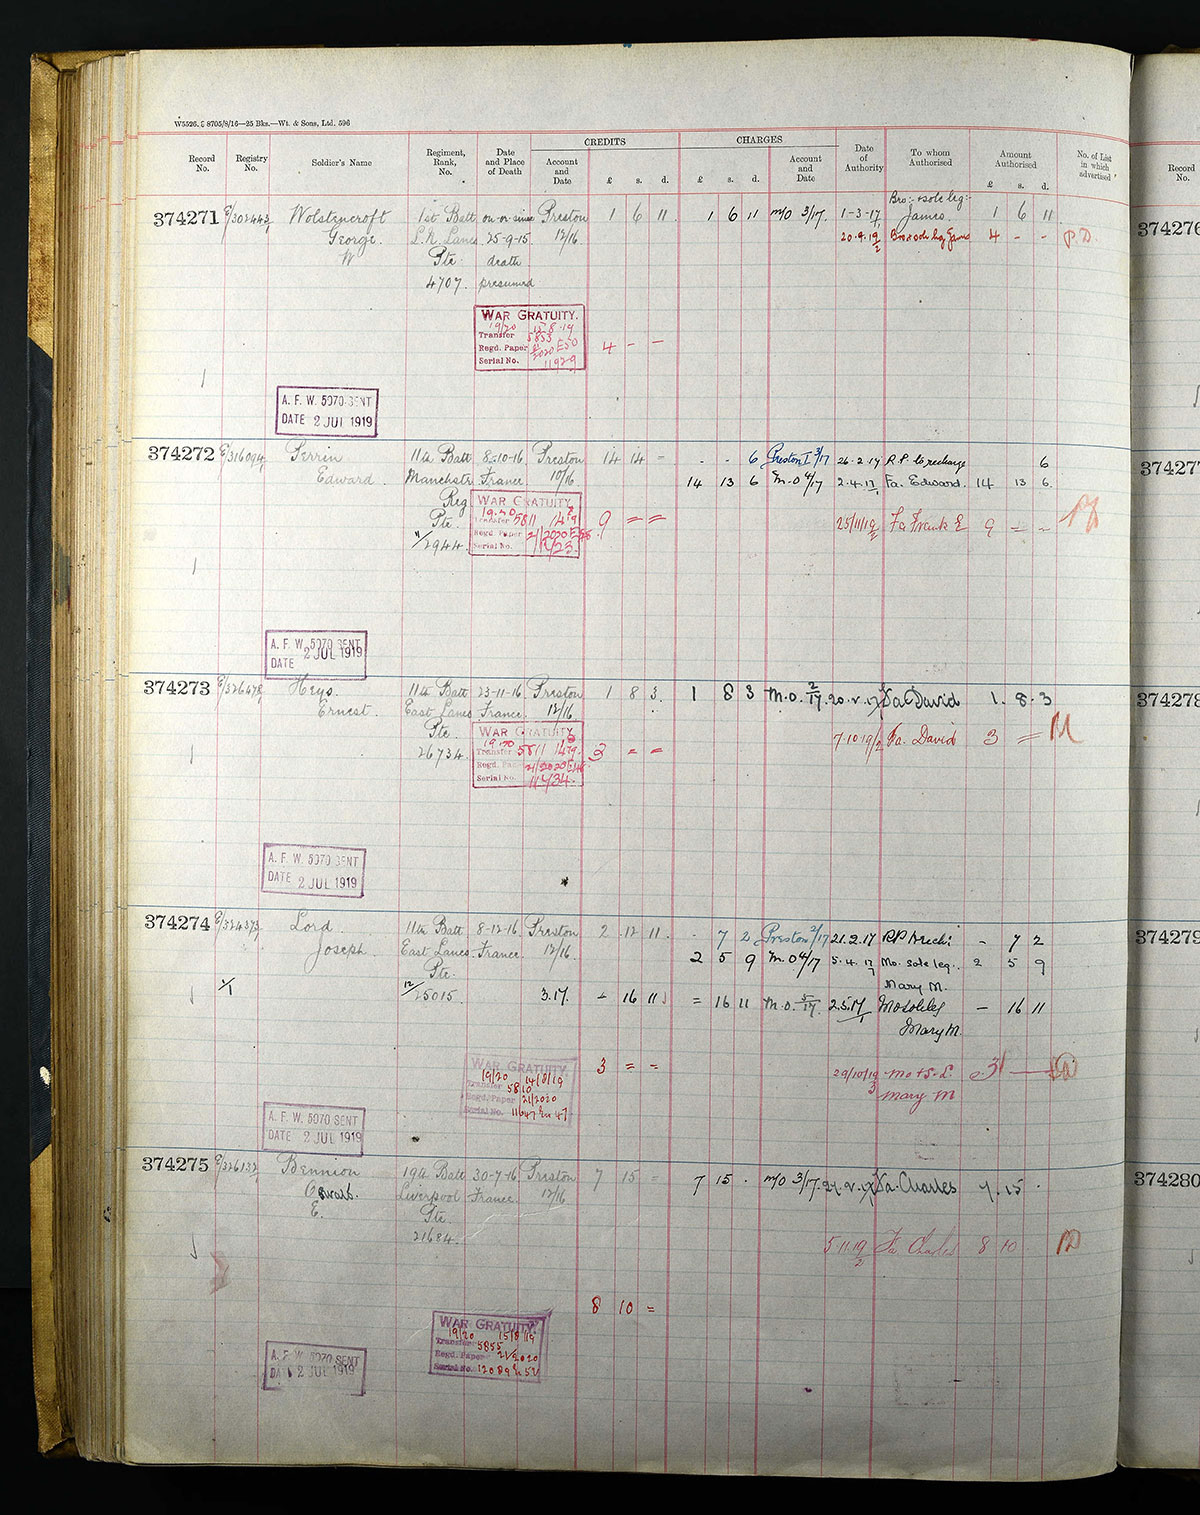 W5526. 8705/8/16—25 Bks.—Wt. & Sons, Ltd. 596
CREDITS CHARGES
Record No. Registry No. Soldier's Name Regiment, Rank, No. Date and Place of Death Account and Date £ s. d. £ s. d. Account and Date Date of Authority To whom Authorised Amount Authorised £ s. d. No. of List in which advertised Record No.
Bro:- sole leg:-
374271 E/302443/1 Wolstencroft 1st Batt on or since Preston 1 6 11. 1 6 11 M/O 3/17. 1-3-17, James. 1 6 11 374276
George. L.N. Lancs 25-9-15. 12/16 20.9.19 Bro & sole leg James 4 - - P.D.
W Pte death
4707. presumed
WAR GRATUITY.
19/20 15.8.19
Transfer 5853
Regd. Paper 21/2020 E50 4 - -
Serial No. 11929
A. F. W. 5070 SENT
DATE 2 JUL 1919
374272 E/316094/1 Perrin 11th Batt 8-10-16. Preston 14 14 = - - 6 Preston I 3/17 26-2-17 R.P. to recharge 6
Edward. Manchstr France 10/16 14 13 6 M.O 4/17 2.4.17 Fa. Edward. 14 13 6.
Reg WAR GRATUITY
Pte. 19.20 Transfer 5811 9 = = 25/11/19 Fa Frank E 9 = -
11/2944. Regd Paper 21/2020
Serial No.
A. F. W. 5070 SENT
DATE 2 JUL 1919
374273 E/326478/1 Heys. 11th Batt 23-11-16. Preston 1 8 3. 1 8 3 M.O. 2/17. Fa David 1. 8. 3 374278
Ernest. East Lancs France. 12/16
Pte. WAR GRATUITY 7.10.19/2 Fa. David 3 =
26734. 19.20 Transfer 5811 3 = =
Regd. Paper 21/2020
Serial No. 11434.
A. F. W. 5070 SENT
DATE 2 JUL 1919
374274 E/324373/1 Lord. 11th Batt 8-12-16. Preston 2 12 11. . 7 2 Preston 2/17 21.2.17 RP - 7 2 374279
Joseph. East Lancs. France. 12/16. 2 5 9 M.O 4/17 5.4.17 Mo. sole leg.. 2 5 9
Pte. Mary M.
12/25015. 3.17. - 16 11 = 16 11 M.O. 5/17. 2.5.17 Mo sole leg - 16 11
Mary M.
WAR GRATUITY. 3 = = 29/10/19 Mo + S. L 3
19/20 14/8/19 3 Mary M
Transfer 5810
Regd. Paper 21/2020
Serial No. 11647
A. F. W. 5070 SENT
DATE 2 JUL 1919
374275 E/326132 Bennion 19th Batt 30-7-16 Preston 7 15 = 7 15 . M/O 3/17. Fa. Charles 7. 15 . 374280
Oswald. Liverpool France. 12/16
E. Pte.
21684. 5.11.19/2 Fa Charles 8 10
8 10 =
WAR GRATUITY.
19/20 15/8/19
Transfer 5855
Regd. Paper 21/2020
Serial No.
A. F. W. 5070 SENT
DATE 2 JUL 1919